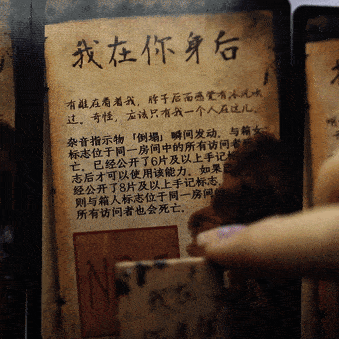 我在你身后
有谁在看着我，脖子后面感觉有冰冷吹
过。奇怪，应该只有我一个人在这儿。
杂音指示物「倒塌」瞬间发动，与箱女
标志位于同一房间中的所有访问者
亡。已经公开了6片及以上手记标
志后才可以使用该能力。如果
经公开了8片及以上手记标志
则与箱人标志位于同一房间
所有访问者也会死亡。
N